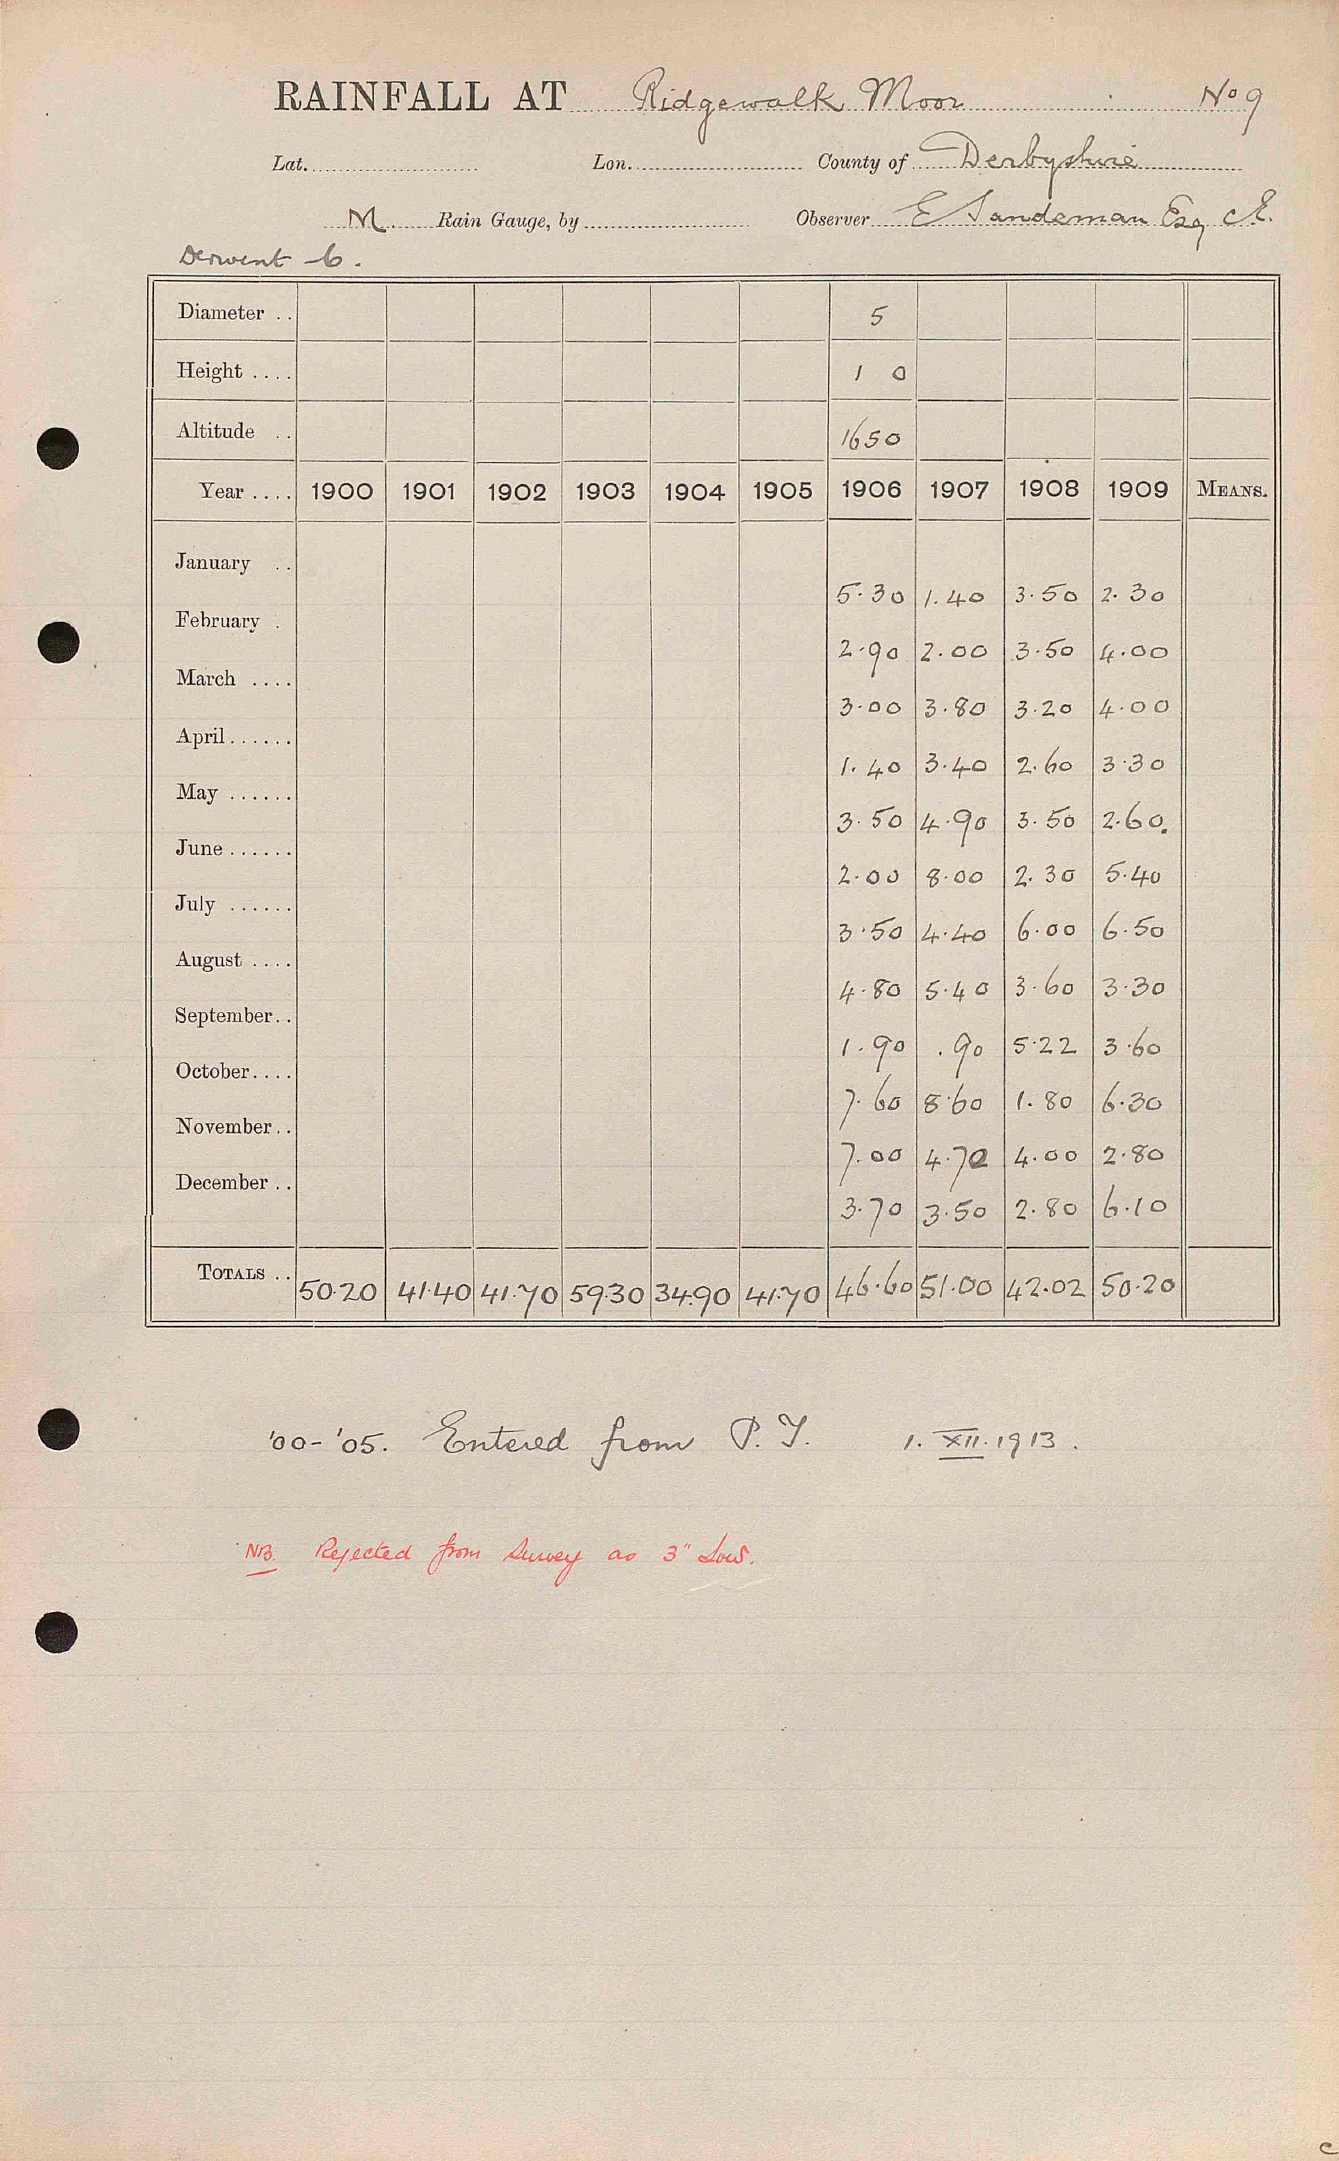 RAINFALL AT Ridgewalk Moor No 9
Lat. Lon. County of Derbyshire
M. Rain Gauge, by Observer E Sandeman Esq C.E.
Derwent 6.
Diameter .. 5
Height .... 1 0
Altitude .. 1650
Year .... 1900 1901 1902 1903 1904 1905 1906 1907 1908 1909 MEANS.
January .. 5.30 1.40 3.50 2.30
February . 2.90 2.00 3.50 4.00
March .... 3.00 3.80 3.20 4.00
April...... 1.40 3.40 2.60 3.30
May ...... 3.50 4.90 3.50 2.60.
June...... 2.00 8.00 2.30 5.40
July ...... 3.50 4.40 6.00 6.50
August .... 4.80 5.40 3.60 3.30
September.. 1.90 .90 5.22 3.60
October.... 7.60 8.60 1.80 6.30
November.. 7.00 4.70 4.00 2.80
December .. 3.70 3.50 2.80 6.10
TOTALS .. 50.20 41.40 41.70 59.30 34.90 41.70 46.60 51.00 42.02 50.20
'00-'05. Entered from P. T. 1. XII. 1913.
NB. Rejected from Survey as 3" Low.
c